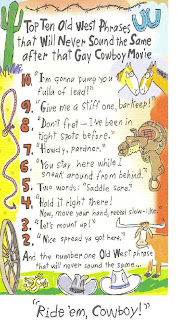 Top Ten Old West Phrases
that Will Never Sound the Same
after that Gay Cowboy Movie
10. "I'm gonna pump you
fulla of lead!"
9. "Give me a stiff one, barkeep!"
8. "Don't fret—I've been in
tight spots before."
7. "Howdy, pardner."
6. "You stay here while I
sneak around from behind."
5. Two words: "Saddle sore."
4. "Hold it right there!
Now, move your hand, reveal slow-like."
3. "Let's mount up!"
2. "Nice spread ya got here."
And the number one Old West phrase
that will never sound the same...
"Ride 'em, Cowboy!"